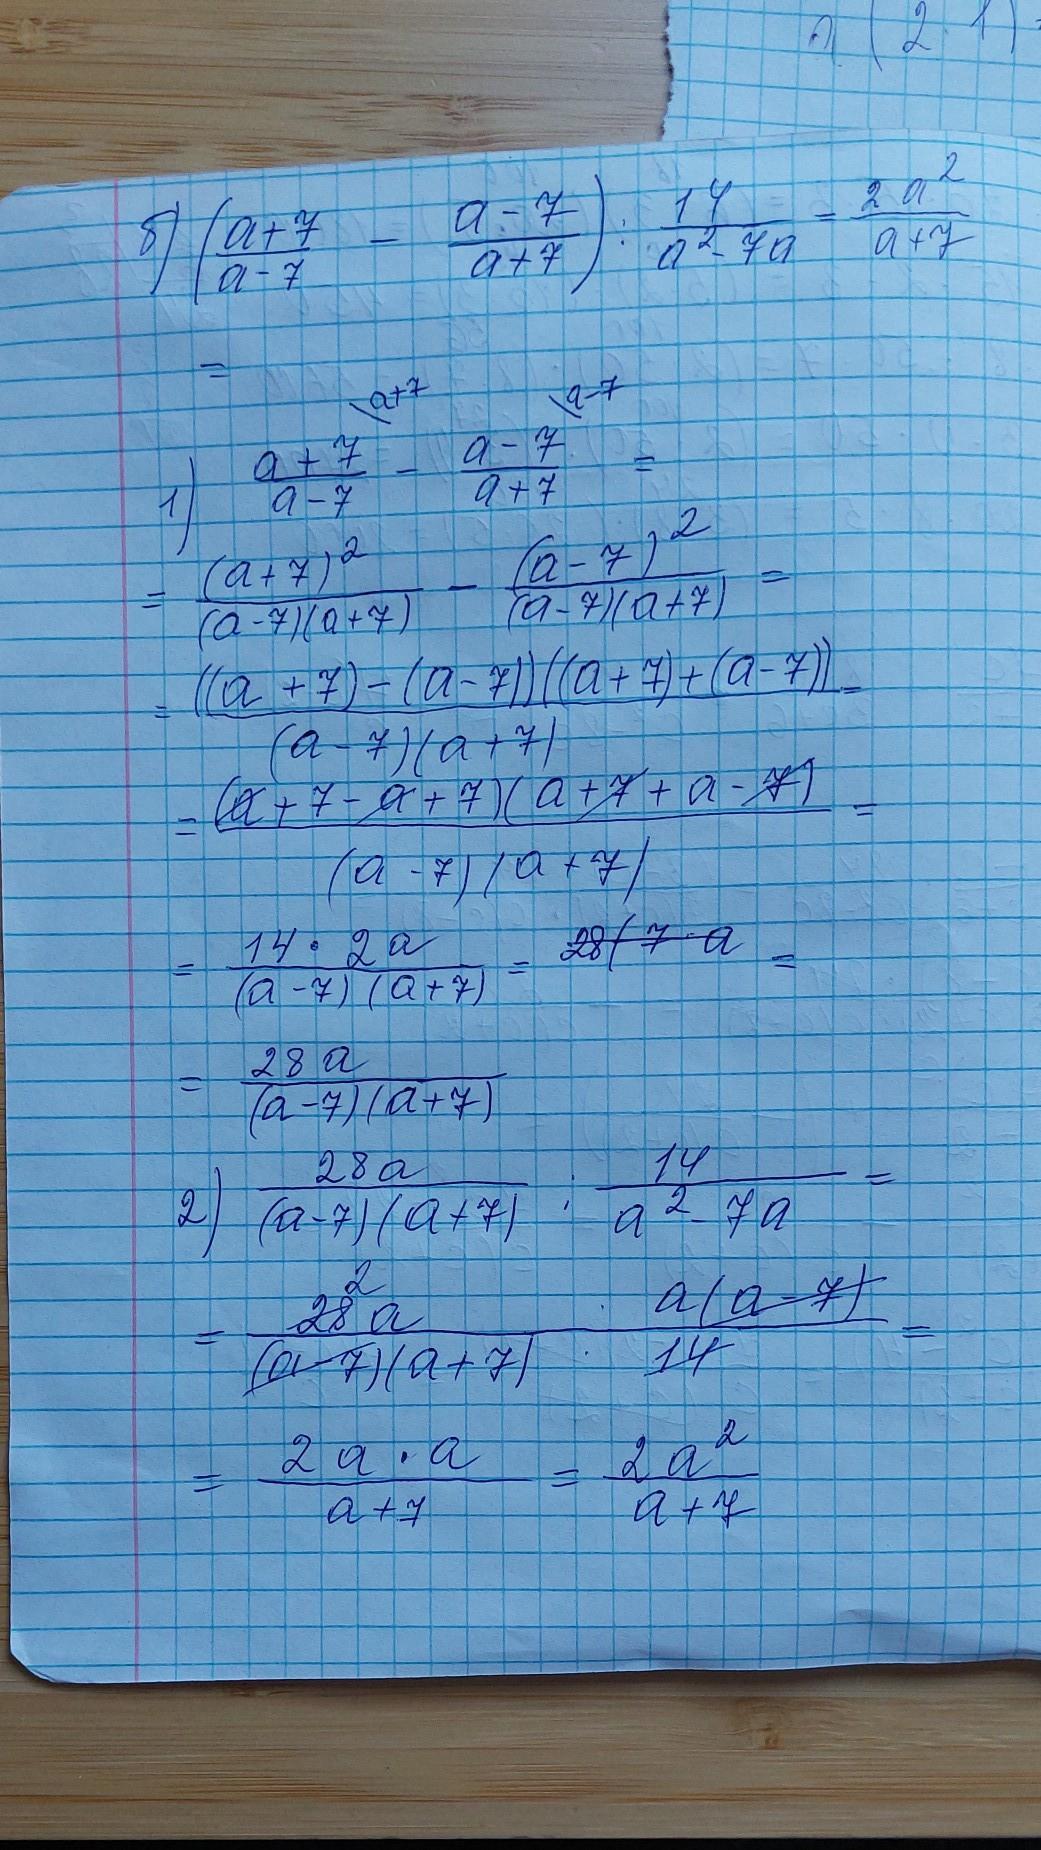 б) ((a+7)/(a-7) - (a-7)/(a+7)) : 14/(a²-7a) = 2a²/(a+7)
=
1) (a+7)/(a-7) \a+7 - (a-7)/(a+7) \a-7 =
= (a+7)²/((a-7)(a+7)) - (a-7)²/((a-7)(a+7)) =
= ((a+7)-(a-7))((a+7)+(a-7))/((a-7)(a+7)) =
= (a+7-a+7)(a+7+a-7)/((a-7)(a+7)) =
= 14·2a/((a-7)(a+7)) = 28(7·a =
= 28a/((a-7)(a+7))
2) 28a/((a-7)(a+7)) : 14/(a²-7a) =
= 28 2 a/((a-7)(a+7)) · a(a-7)/14 =
= 2a·a/(a+7) = 2a²/(a+7)